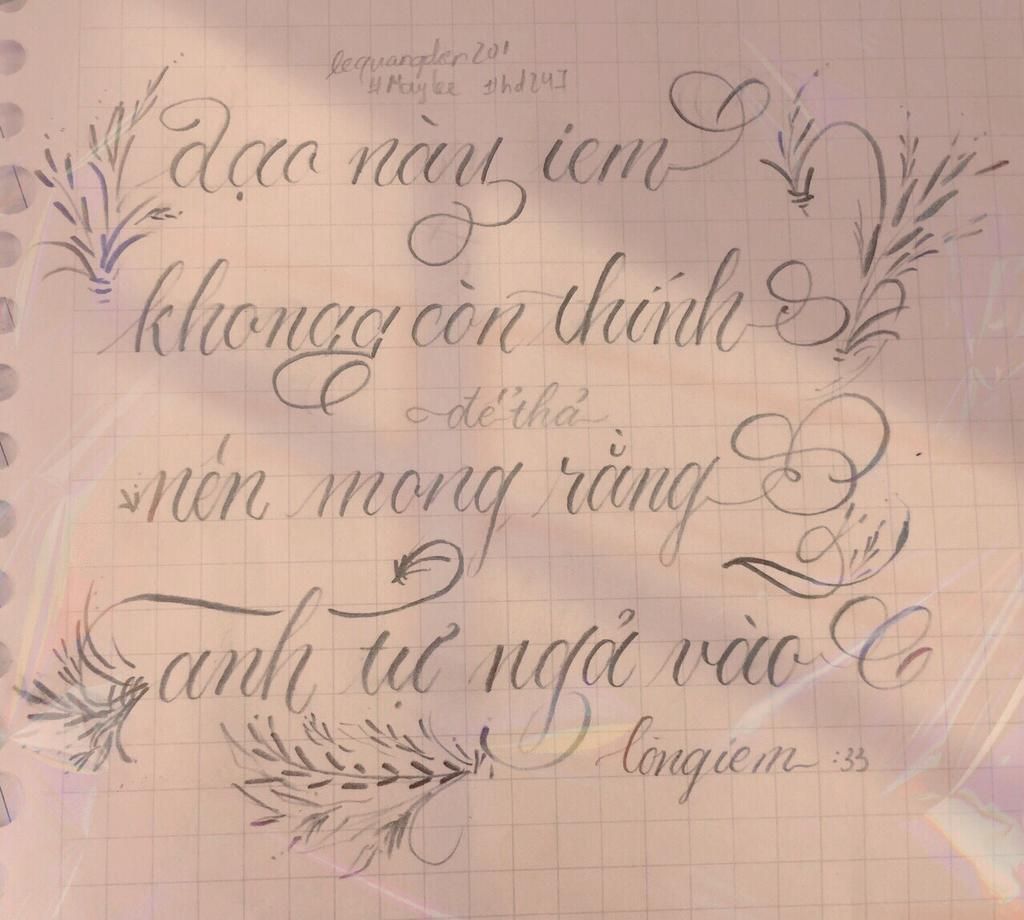 lequangden201
#Maylee #hd247
dạo này iem
không còn thính
để thả
nên mong rằng
anh tự ngả vào
lòng iem :33